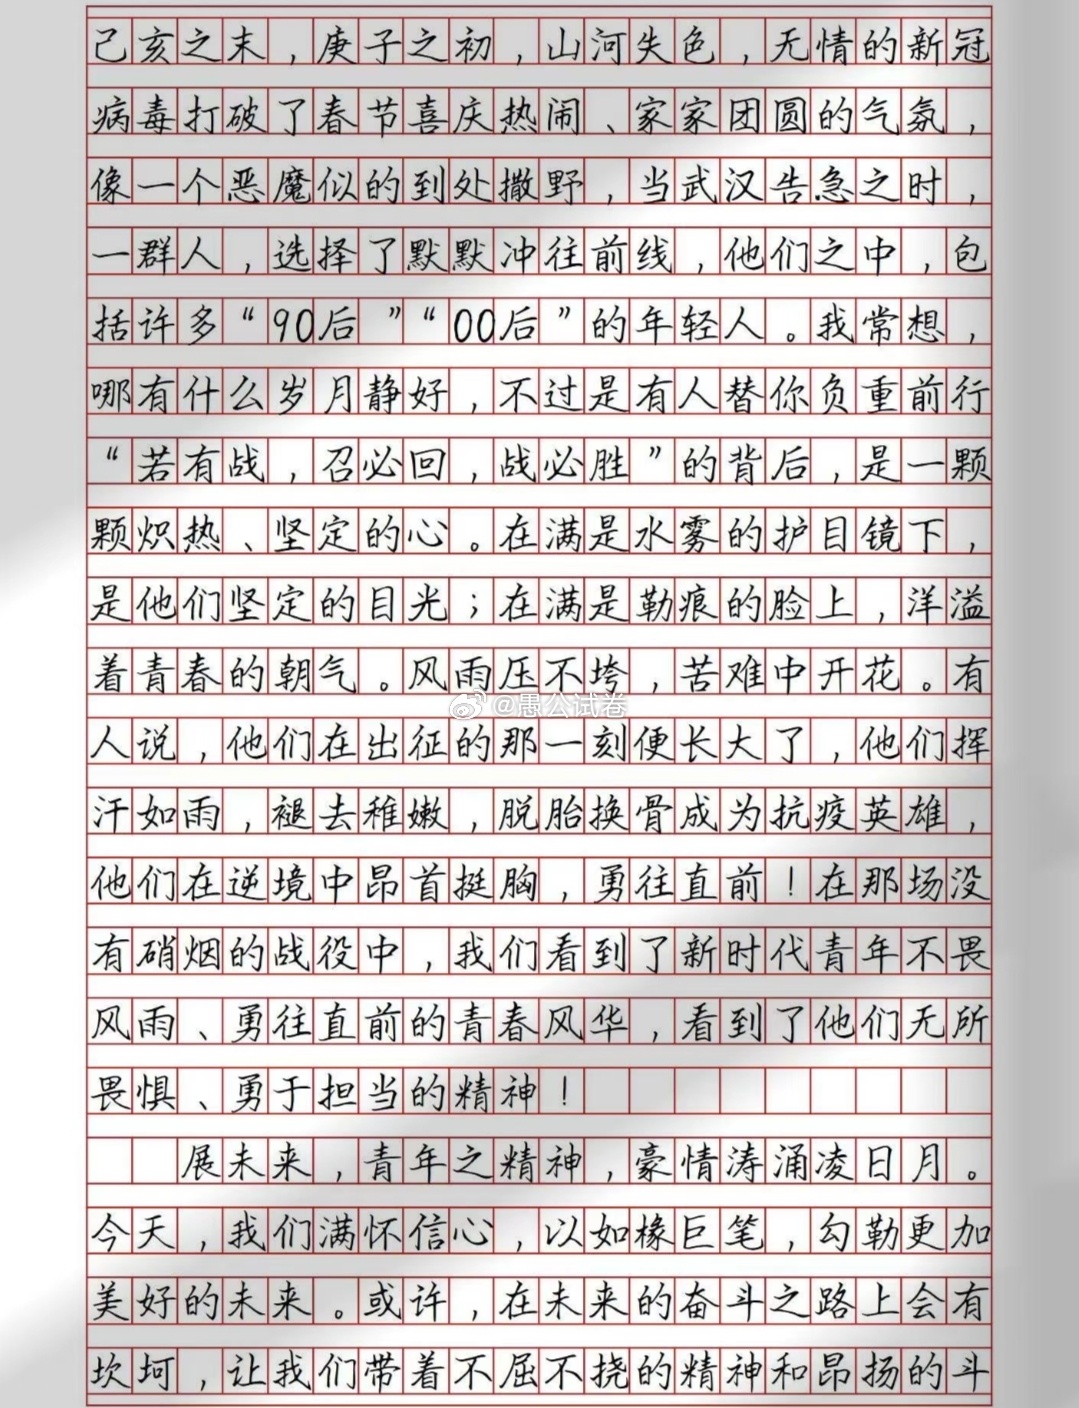 己亥之末，庚子之初，山河失色，无情的新冠
病毒打破了春节喜庆热闹、家家团圆的气氛，
像一个恶魔似的到处撒野，当武汉告急之时，
一群人，选择了默默冲往前线，他们之中，包
括许多“90后”“00后”的年轻人。我常想，
哪有什么岁月静好，不过是有人替你负重前行
“若有战，召必回，战必胜”的背后，是一颗
颗炽热、坚定的心。在满是水雾的护目镜下，
是他们坚定的目光；在满是勒痕的脸上，洋溢
着青春的朝气。风雨压不垮，苦难中开花。有
@愚公试卷
人说，他们在出征的那一刻便长大了，他们挥
汗如雨，褪去稚嫩，脱胎换骨成为抗疫英雄，
他们在逆境中昂首挺胸，勇往直前！在那场没
有硝烟的战役中，我们看到了新时代青年不畏
风雨、勇往直前的青春风华，看到了他们无所
畏惧、勇于担当的精神！
展未来，青年之精神，豪情涛涌凌日月。
今天，我们满怀信心，以如椽巨笔，勾勒更加
美好的未来。或许，在未来的奋斗之路上会有
坎坷，让我们带着不屈不挠的精神和昂扬的斗